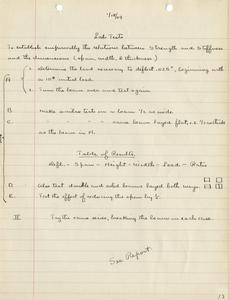 Lab Tests
To establish empirically the relations between Strength and Stiffness
and the dimensions (span, width, & thickness)
A determine the load necessary to deflect .025", beginning
with a 10# initial load.
Turn the beam over and test again
B. make similar tests on a beam 1/2 as wide.
C. " " " " beam layed flat, i.e. 1/2 as thick
as the beam in A.
Table of Results.
Defl. - Span - Height - Width - Load - Ratio
D. Also test double and solid beams layed both ways.
E. Test the effect of reducing the span by 1/2
II. Try the same series, breaking the beams in each case.
See Report.